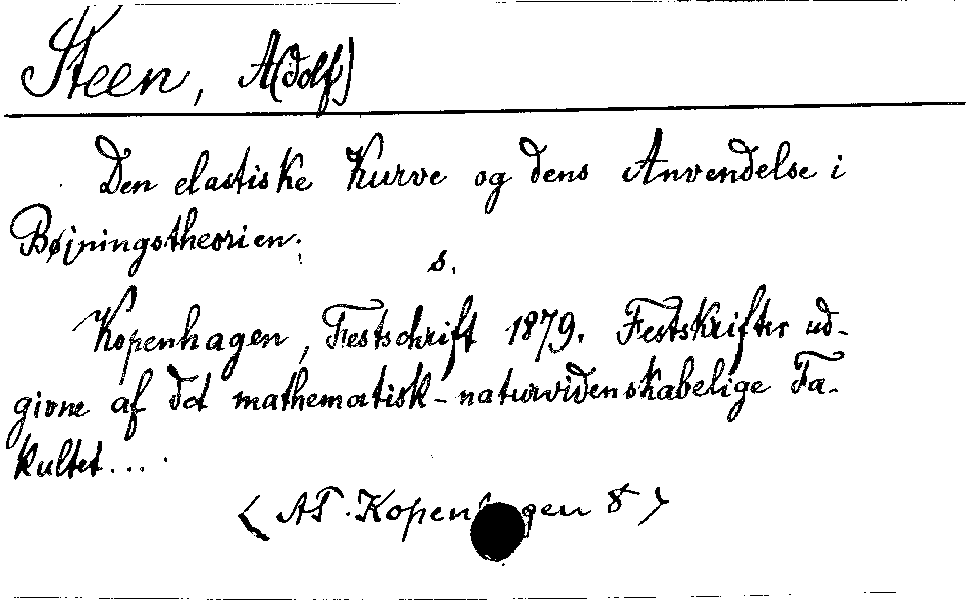 Steen, A(dolf)
Den elastiske Kurve og dens Anvendelse i
Bøjningstheorien.
s.
Kopenhagen, Festschrift 1879. Festskrifter ud-
givne af det mathematisk-naturvidenskabelige Fa-
kultet....
< AT. Kopenhagen 8 >